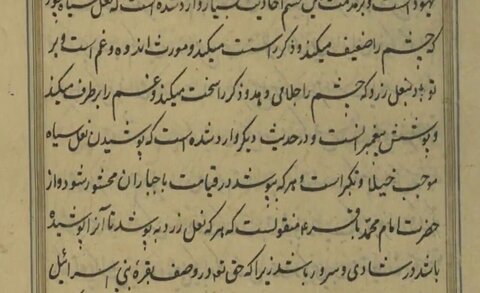 یهود است و در مذمت این قسم احادیث بسیار وارد شده است که نعل سیاه مپوش
که چشم را ضعیف میکند و ذکر را سست میکند و مورث اندوه و غم است و بر
تو باد بنعل زرد که چشم را جلا می دهد و ذکر را سخت میکند و غم را برطرف میکند
و پوشش پیغمبرانست و در حدیث دیگر وارد شده است که پوشیدن نعل سیاه
موجب خیلا و تکبر است و هر که بپوشد در قیامت با جباران محشور شود و از
حضرت امام محمد باقر ع منقولست که هر که نعل زرد بپوشد تا آنرا پوشیده
باشد در شادی و سرور باشد زیرا که حق تع در وصف بقرهٔ بنی اسرائیل